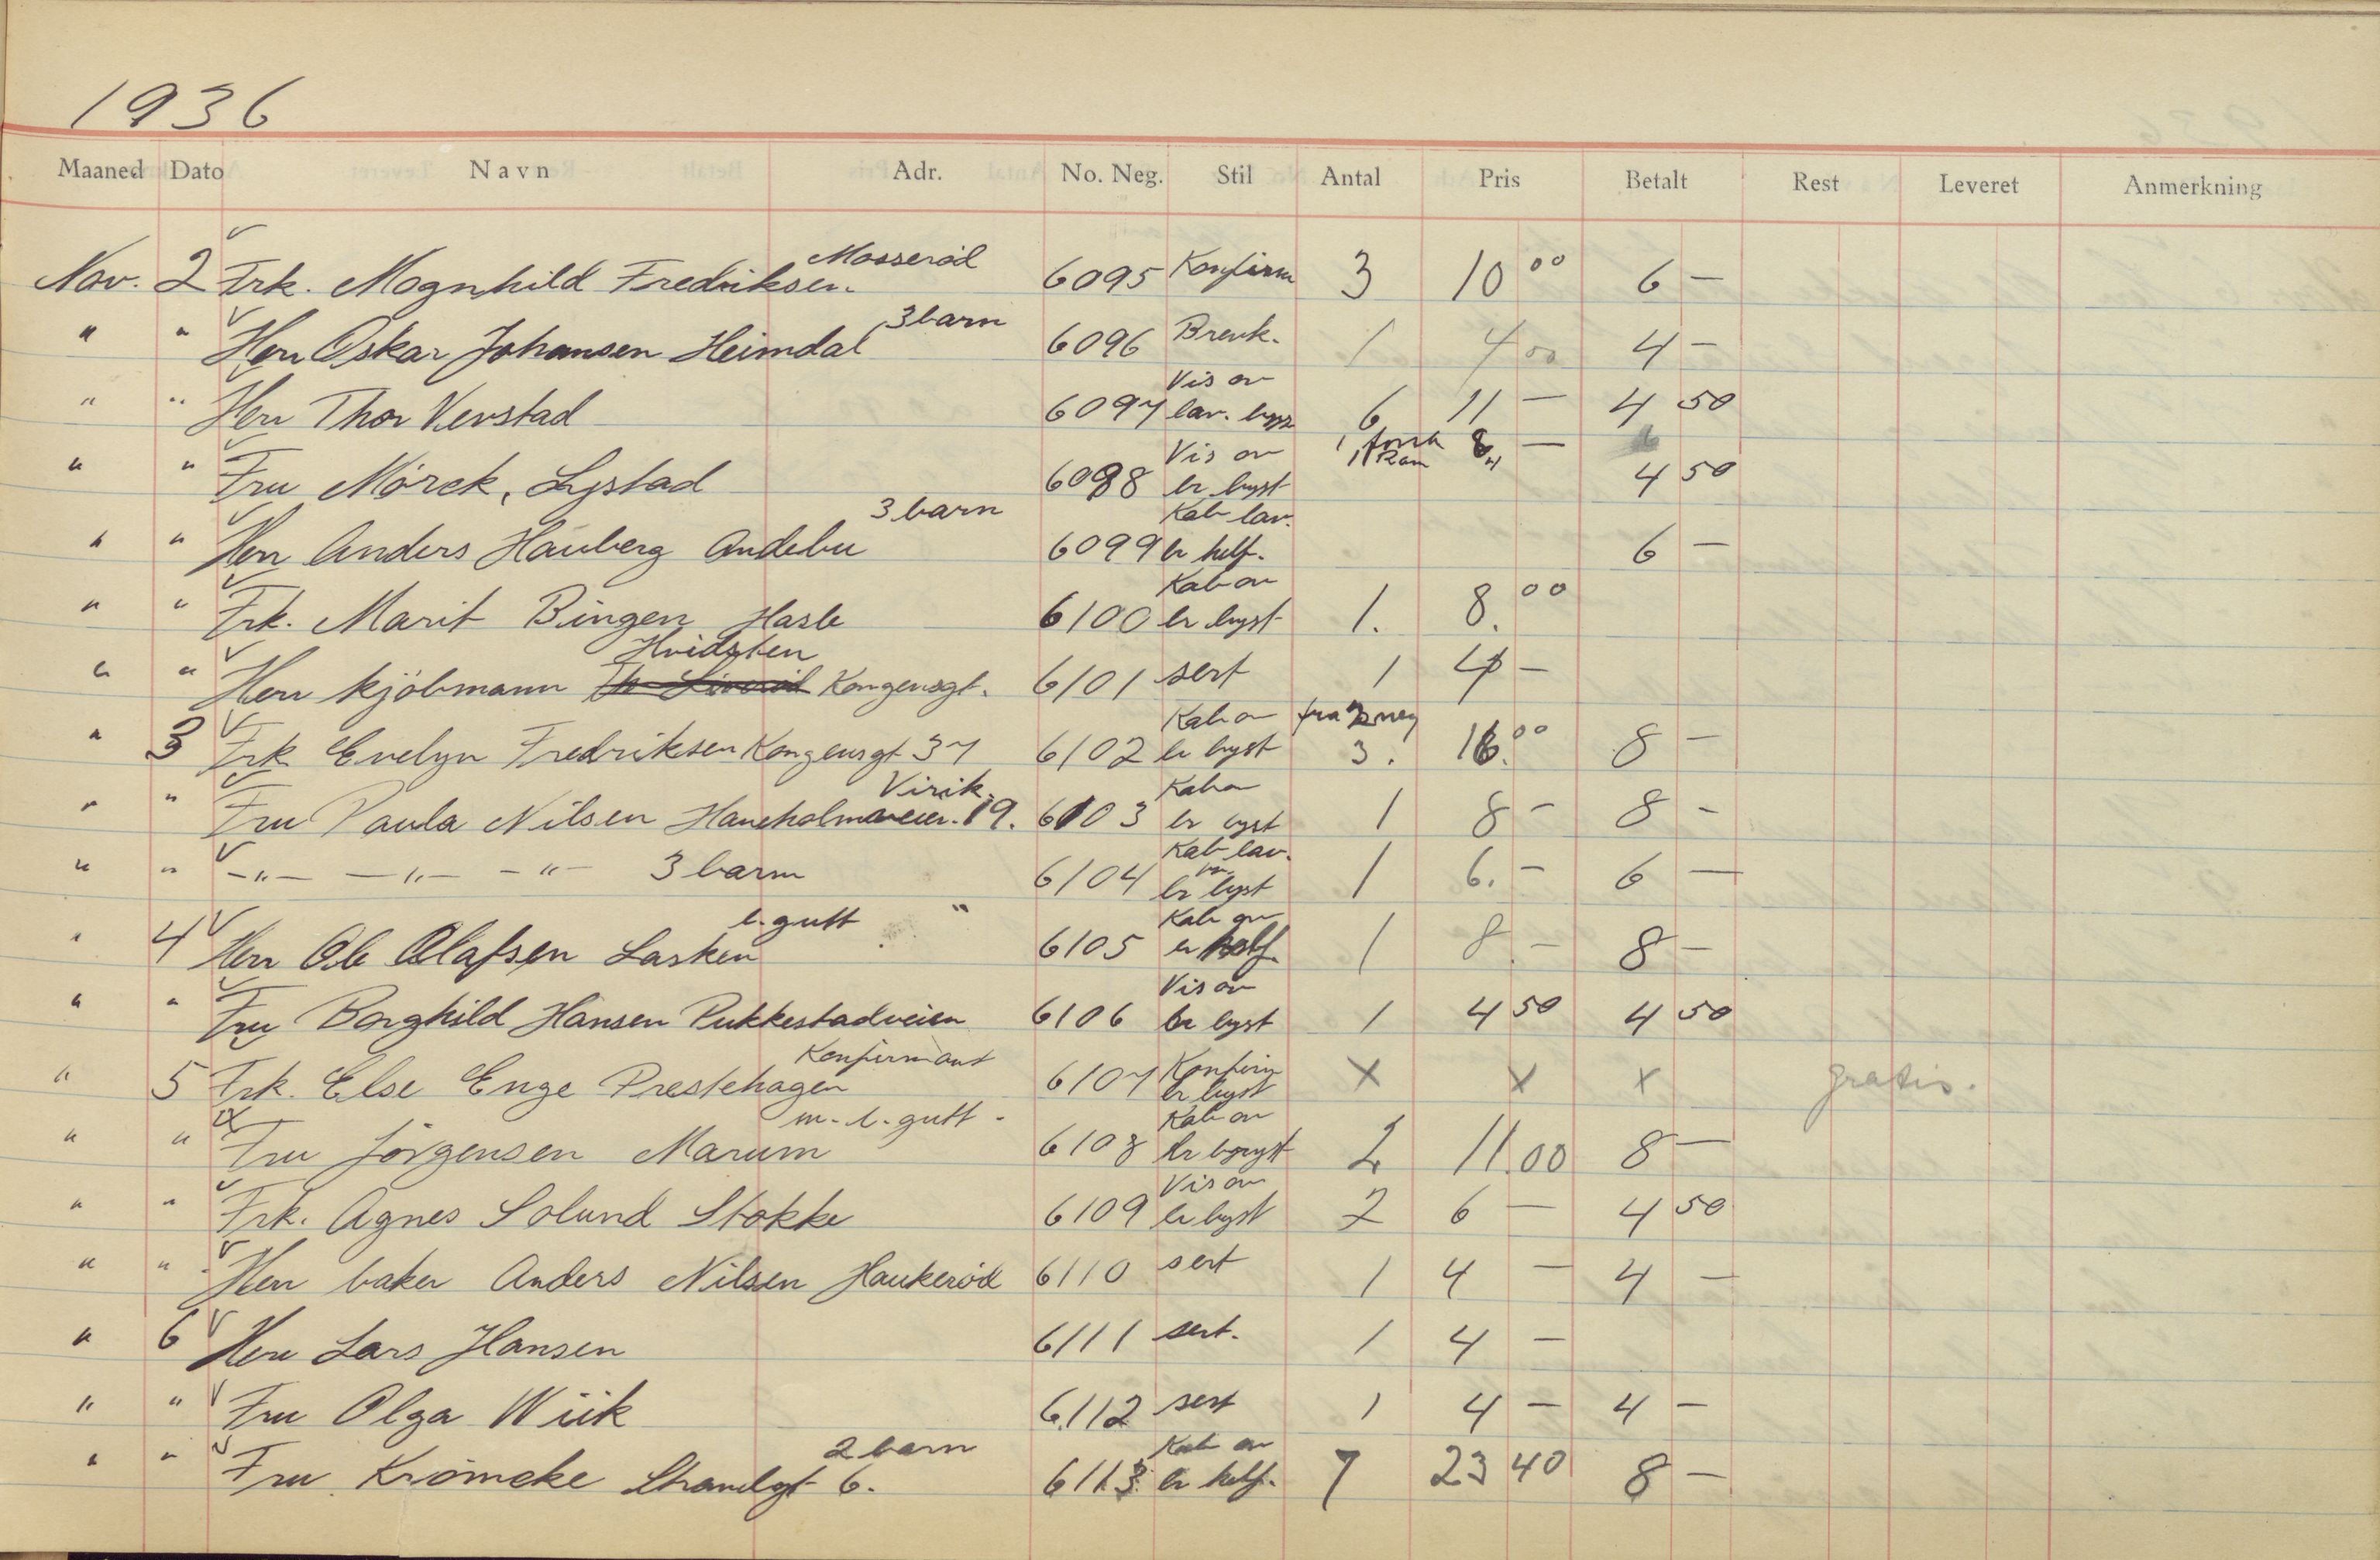 1936
Maaned Dato Navn Adr. No. Neg. Stil Antal Pris Betalt Rest Leveret Anmerkning
Mosserød
Nov. 2 Frk. Magnhild Fredriksen. 6095 Konfirm 3 10 00 6 -
3 barn
" " Herr Oskar Johansen Heimdal 6096 Brevk. 1 4 00 4 -
Vis ov
" " Herr Thor Verstad 6097 lav. 6 11 - 4 50
Vis ov 1 1 Ram 8 -
" " Fru Mörck, Lystad 6098 br byst 4 50
3 barn Kab lav.
" " Herr Anders Hauberg Andebu 6099 br helf. 6 -
Kab ov
" " Frk. Marit Bingen Hasle 6100 br byst 1. 8. 00
Hvidsten
" " Herr kjöbmann Kongensgt. 6101 sert 1 4 -
Kab ov fra 2 neg
" 3 Frk Evelyn Fredriksen Kongensgt 37 6102 br byst 3. 16. 00 8 -
Virik. Kab ov
" " Fru Paula Nilsen Haneholmveien. 19. 6103 br byst 1 8 - 8 -
Kab lav.
" " -"- -"- -"- 3 barn 6104 br byst 1 6. - 6 -
l. gutt " Kab ov
" 4 Herr Ole Olafsen Lasken 6105 br helf. 1 8 - 8 -
Vis ov
" " Fru Borghild Hansen Pukkestadveien 6106 br byst 1 4 50 4 50
Konfirmant Konfirm
" 5 Frk. Else Enge Prestehagen 6107 br byst x x x gratis.
m. l. gutt - Kab ov
" " Fru Jörgensen Marum 6108 br bryst 2 11.00 8 -
Vis ov
" " Frk. Agnes Solund Stokke 6109 br byst 2 6 - 4 50
" " Herr baker Anders Nilsen Haukeröd 6110 sert 1 4 - 4 -
" 6 Herr Lars Hansen 6111 sert. 1 4 -
" " Fru Olga Wiik 6112 sert 1 4 - 4 -
2 barn Kab ov
" " Fru Krömcke Strandgt 6. 6113 br helf. 7 23 40 8 -